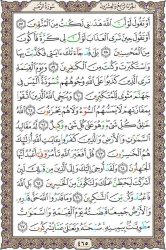 أَوْ تَقُولَ لَوْ أَنَّ ٱللَّهَ هَدَىٰنِي لَكُنتُ مِنَ ٱلْمُتَّقِينَ ٥٧
أَوْ تَقُولَ حِينَ تَرَى ٱلْعَذَابَ لَوْ أَنَّ لِي كَرَّةً فَأَكُونَ
مِنَ ٱلْمُحْسِنِينَ ٥٨ بَلَىٰ قَدْ جَآءَتْكَ ءَايَٰتِي فَكَذَّبْتَ بِهَا
وَٱسْتَكْبَرْتَ وَكُنتَ مِنَ ٱلْكَٰفِرِينَ ٥٩ وَيَوْمَ ٱلْقِيَٰمَةِ
تَرَى ٱلَّذِينَ كَذَبُوا۟ عَلَى ٱللَّهِ وُجُوهُهُم مُّسْوَدَّةٌ أَلَيْسَ فِي
جَهَنَّمَ مَثْوًى لِّلْمُتَكَبِّرِينَ ٦٠ وَيُنَجِّي ٱللَّهُ ٱلَّذِينَ ٱتَّقَوْا۟
بِمَفَازَتِهِمْ لَا يَمَسُّهُمُ ٱلسُّوٓءُ وَلَا هُمْ يَحْزَنُونَ ٦١ ٱللَّهُ
خَٰلِقُ كُلِّ شَيْءٍ وَهُوَ عَلَىٰ كُلِّ شَيْءٍ وَكِيلٌ ٦٢ لَّهُ مَقَالِيدُ
ٱلسَّمَٰوَٰتِ وَٱلْأَرْضِ وَٱلَّذِينَ كَفَرُوا۟ بِـَٔايَٰتِ ٱللَّهِ أُو۟لَٰٓئِكَ
هُمُ ٱلْخَٰسِرُونَ ٦٣ قُلْ أَفَغَيْرَ ٱللَّهِ تَأْمُرُوٓنِّي أَعْبُدُ أَيُّهَا
ٱلْجَٰهِلُونَ ٦٤ وَلَقَدْ أُوحِيَ إِلَيْكَ وَإِلَى ٱلَّذِينَ مِن قَبْلِكَ
لَئِنْ أَشْرَكْتَ لَيَحْبَطَنَّ عَمَلُكَ وَلَتَكُونَنَّ مِنَ ٱلْخَٰسِرِينَ ٦٥
بَلِ ٱللَّهَ فَٱعْبُدْ وَكُن مِّنَ ٱلشَّٰكِرِينَ ٦٦ وَمَا قَدَرُوا۟ ٱللَّهَ
حَقَّ قَدْرِهِ وَٱلْأَرْضُ جَمِيعًا قَبْضَتُهُ يَوْمَ ٱلْقِيَٰمَةِ وَٱلسَّمَٰوَٰتُ
مَطْوِيَّٰتٌ بِيَمِينِهِ سُبْحَٰنَهُ وَتَعَٰلَىٰ عَمَّا يُشْرِكُونَ ٦٧
٤٦٥